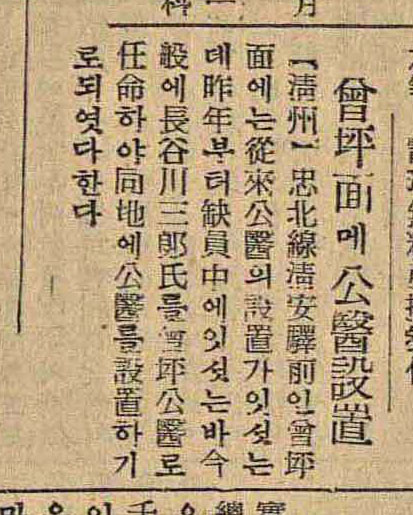 曾坪面에 公醫設置
【淸州】忠北線淸安驛前인曾坪
面에는從來公醫의設置가잇섯는
데昨年부터缺員中에잇섯는바今
般에長谷川三郞氏를曾坪公醫로
任命하야同地에公醫를設置하기
로되엿다한다